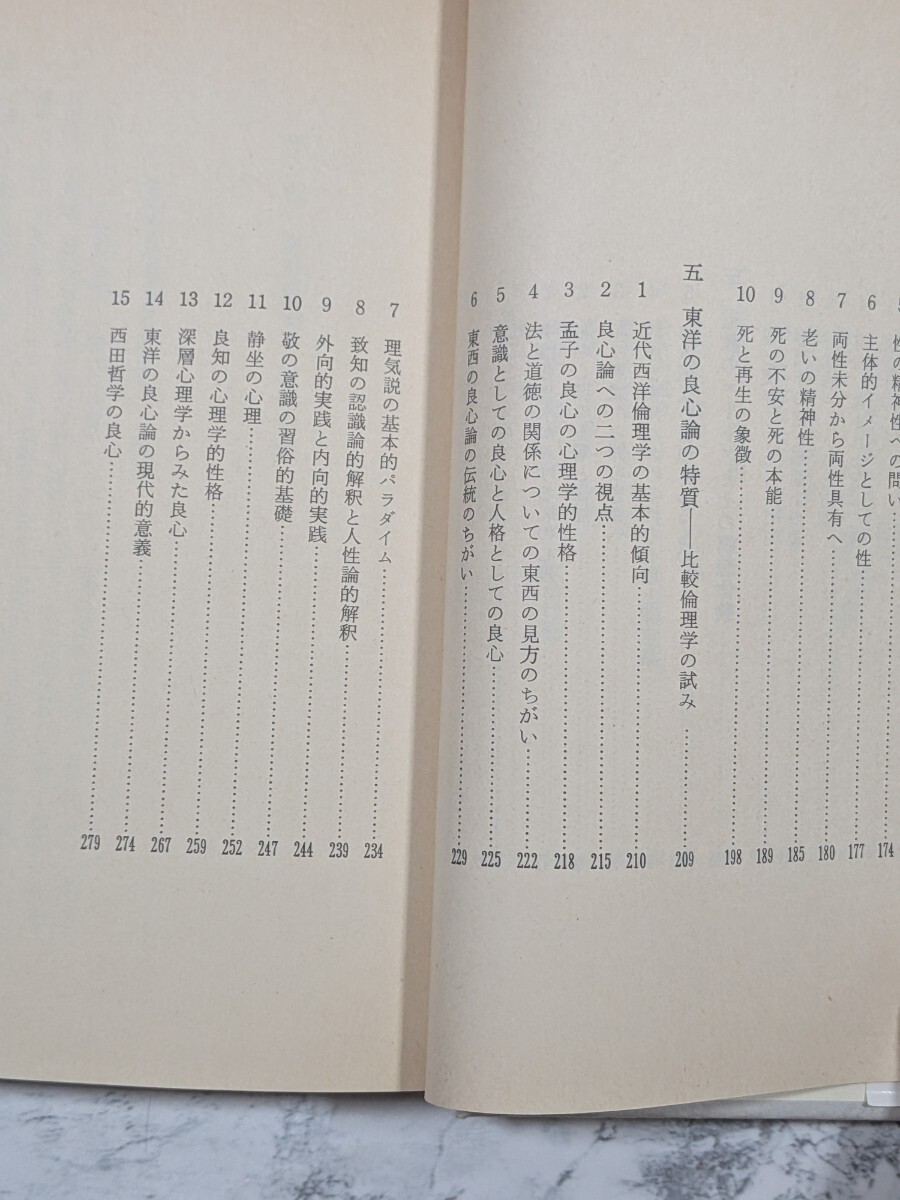 性の精神性への問い……174
6 主体的イメージとしての性……177
7 両性未分から両性具有へ……180
8 老いの精神性……185
9 死の不安と死の本能……189
10 死と再生の象徴……198
五 東洋の良心論の特質――比較倫理学の試み……209
1 近代西洋倫理学の基本的傾向……210
2 良心論への二つの視点……215
3 孟子の良心の心理学的性格……218
4 法と道徳の関係についての東西の見方のちがい……222
5 意識としての良心と人格としての良心……225
6 東西の良心論の伝統のちがい……229
7 理気説の基本的パラダイム……234
8 致知の認識論的解釈と人性論的解釈……239
9 外向的実践と内向的実践……244
10 敬の意識の習俗的基礎……247
11 静坐の心理……252
12 良知の心理学的性格……259
13 深層心理学からみた良心……267
14 東洋の良心論の現代的意義……274
15 西田哲学の良心……279